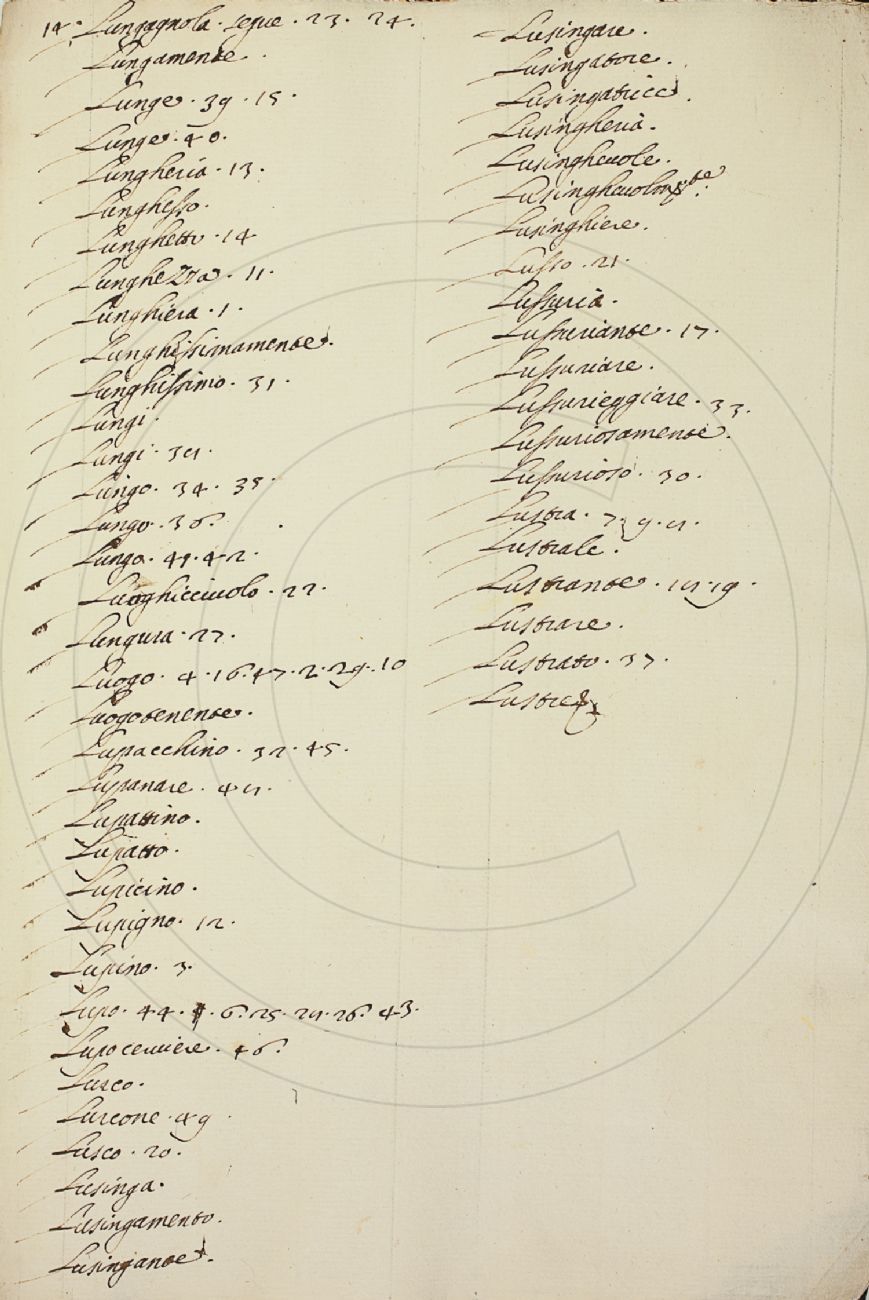 14. Lungagnola. segue. 23. 24.
Lungamente.
Lunge. 39. 15.
Lunge. 40.
Lungheria. 13.
Lunghesso.
Lunghetto. 14
Lunghezza. 11.
Lunghiera. 1.
Lunghissimamente.
Lunghissimo. 31.
Lungi.
Lungi.
Lungo. 34. 35.
Lungo. 36.
Lungo. 42.
Luoghicciuolo. 22.
Lungura. 27.
Luogo. 4. 16. 47. 2. 29. 10
Luogotenente.
Lupacchino. 32. 45.
Lupanare.
Lupattino.
Lupatto.
Lupicino.
Lupigno. 12.
Lupino. 3.
Lupo. 44. 6. 25. 26. 43.
Lupo cerviere. 46.
Lurco.
Lurcone. 49.
Lusco. 20.
Lusinga.
Lusingamento.
Lusingante.
Lusingare.
Lusingatore.
Lusingatrice.
Lusingheria.
Lusinghevole.
Lusinghiere.
Lusso. 21.
Lussuria.
Lussuriante. 17.
Lussuriare.
Lussureggiare. 33.
Lussuriosamente.
Lussurioso. 30.
Lustra. 7. 9.
Lustrale.
Lustrante. 19.
Lustrare.
Lustrato. 37.
Lustre